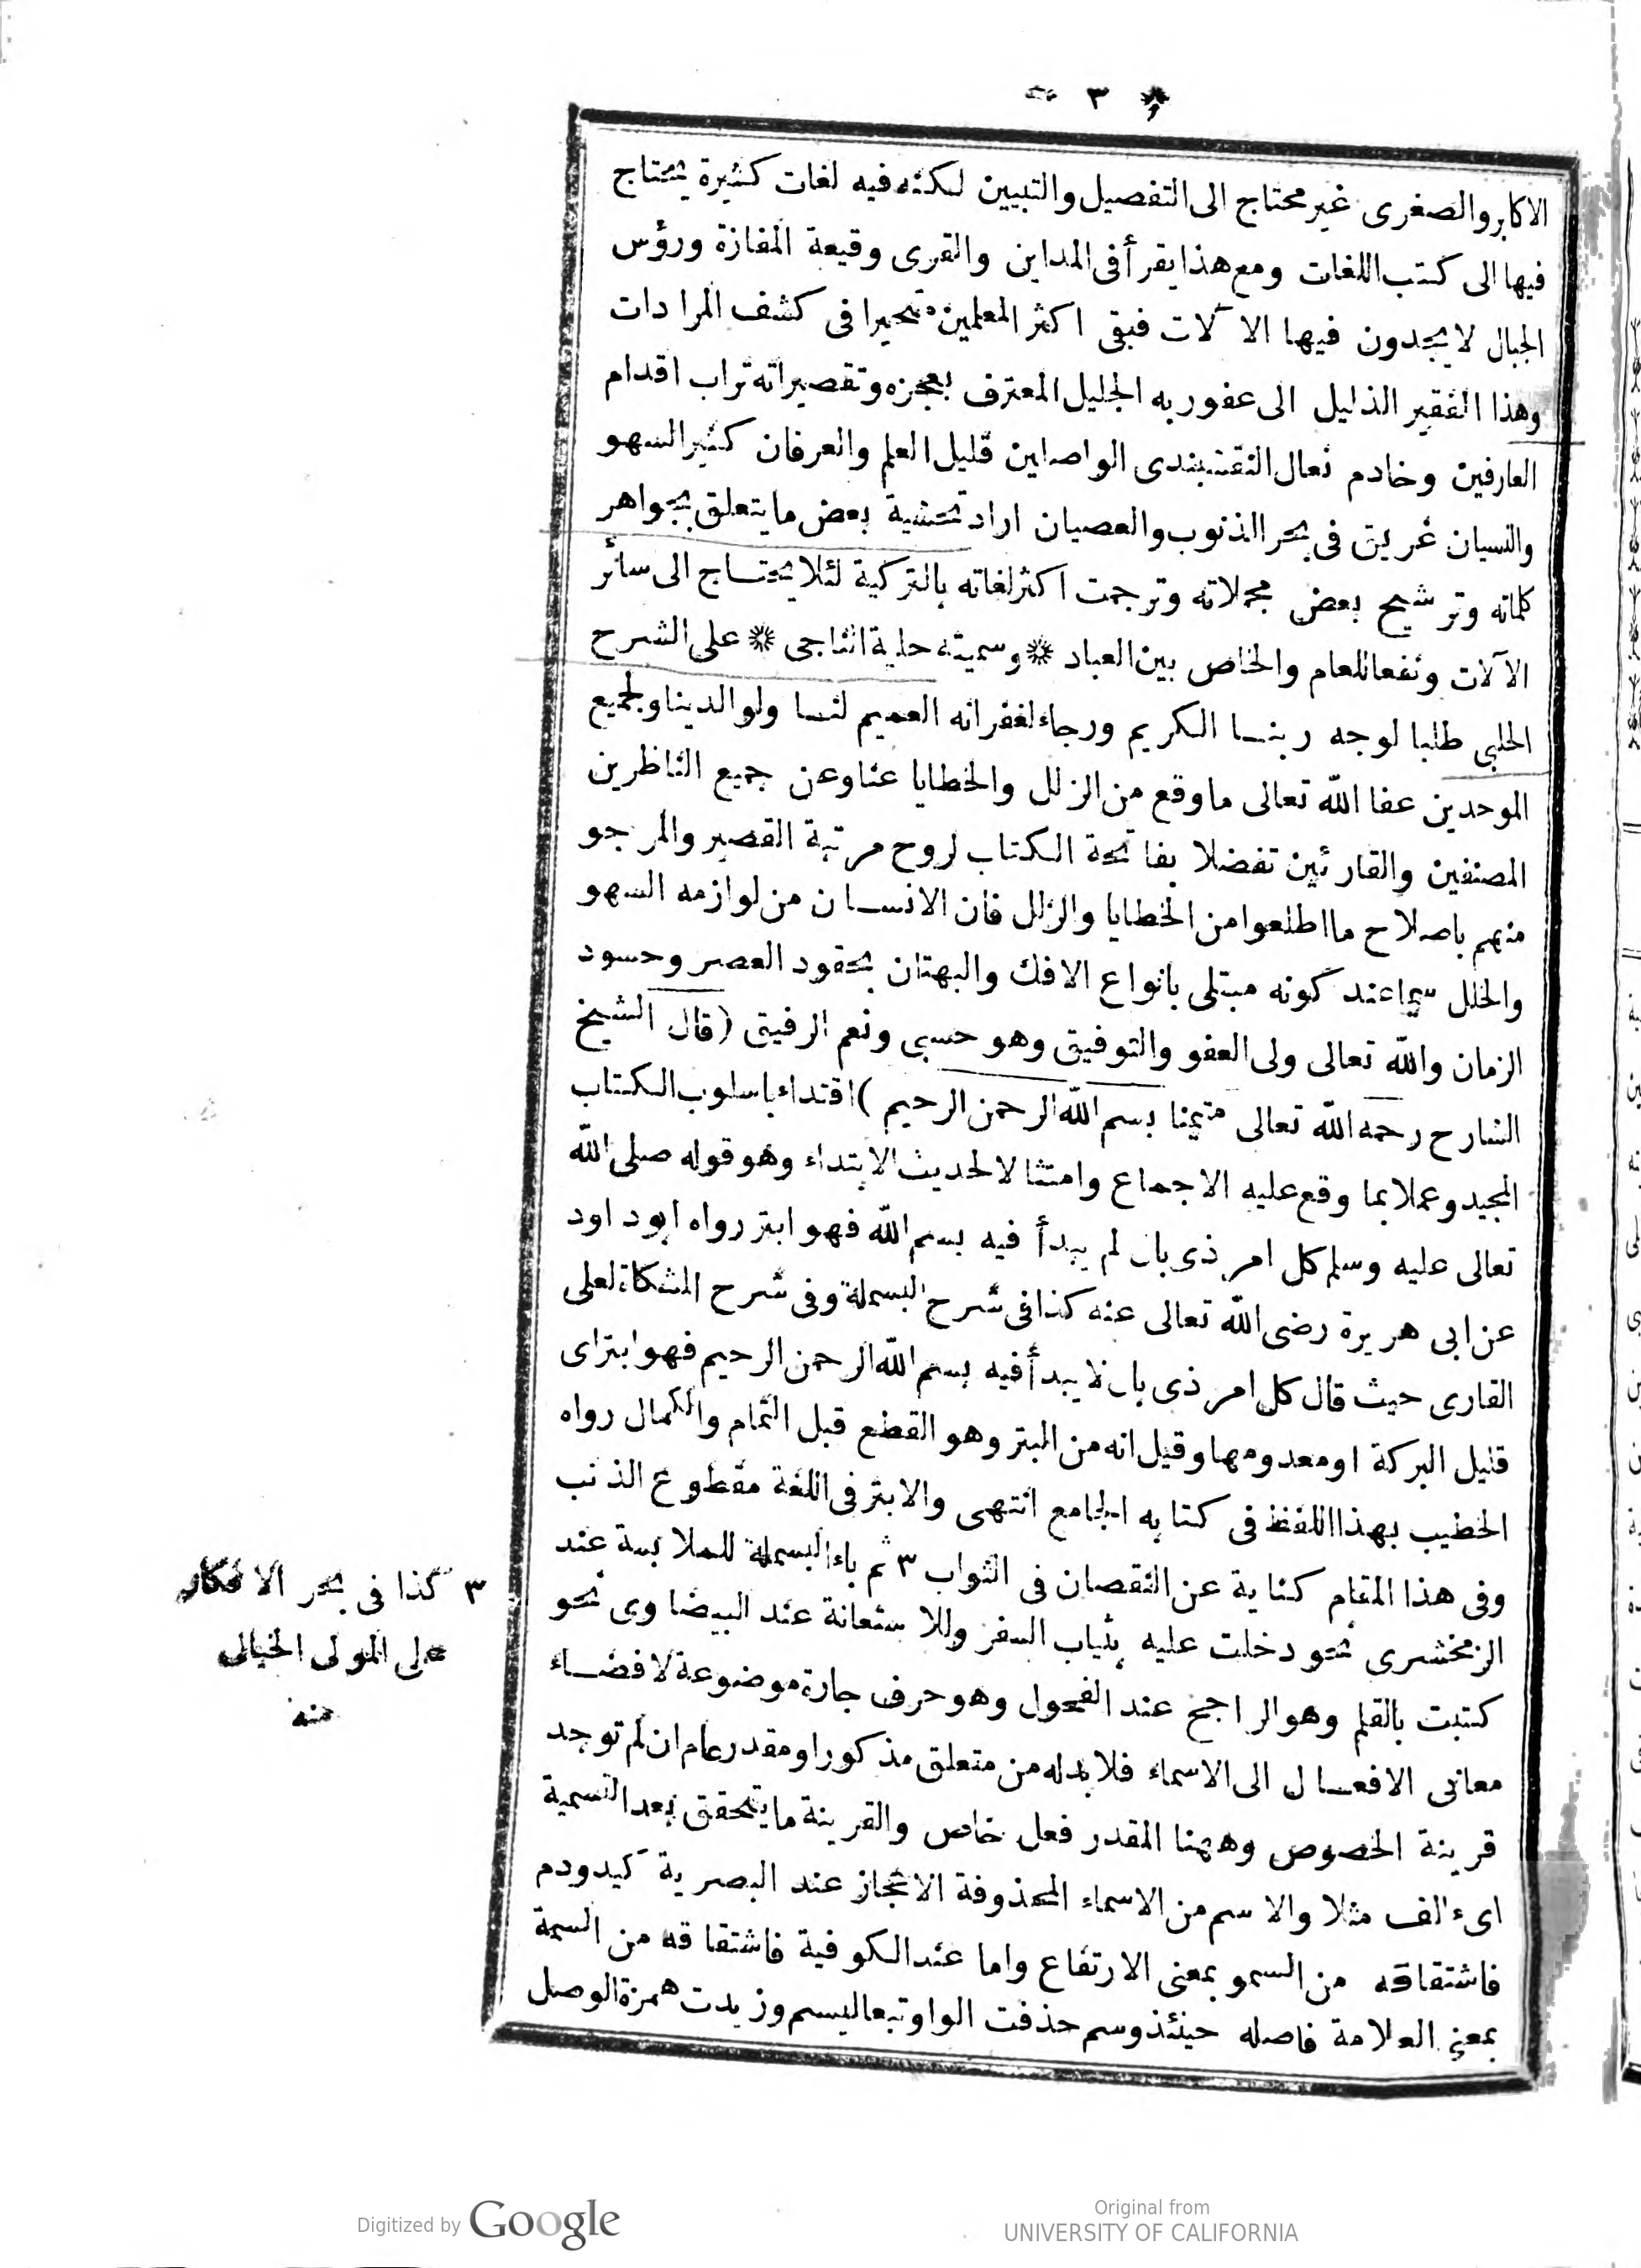 ٣
الاكابر والصغرى غير محتاج الى التفصيل والتبيين لكنه فيه لغات كثيرة يحتاج
فيها الى كتب اللغات ومع هذا يقرأ فى المداين والقرى وقيعة المفازة ورؤس
الجبال لا يجدون فيها الآلات فبقى اكثر المعلمين متحيرا فى كشف المرادات
وهذا الفقير الذليل الى عفو ربه الجليل المعترف بعجزه وتقصيراته تراب اقدام
العارفين وخادم نعال النقشبندى الواصلين قليل العلم والعرفان كثير السهو
والنسيان غريق فى بحر الذنوب والعصيان اراد تحشية بعض ما يتعلق بجواهر
كلماته وترشيح بعض مجملاته وترجمت اكثر لغاته بالتركية لئلا يحتاج الى سائر
الآلات ونفعا للعام والخاص بين العباد * وسميته حلية الناجى * على الشرح
الحلبى طلبا لوجه ربنا الكريم ورجاء لغفرانه العميم لنا ولوالدينا ولجميع
الموحدين عفا الله تعالى ما وقع من الزلل والخطايا عنا وعن جميع الناظرين
المصنفين والقارئين تفضلا بفاتحة الكتاب لروح مرتبة القصير والمرجو
منهم باصلاح ما اطلعوا من الخطايا والزلل فان الانسان من لوازمه السهو
والخلل سيما عند كونه مبتلى بانواع الافك والبهتان بحقود العصر وحسود
الزمان والله تعالى ولى العفو والتوفيق وهو حسبى ونعم الرفيق (قال الشيخ
الشارح رحمه الله تعالى متيمنا بسم الله الرحمن الرحيم) اقتداء باسلوب الكتاب
المجيد وعملا بما وقع عليه الاجماع وامتثالا لحديث الابتداء وهو قوله صلى الله
تعالى عليه وسلم كل امر ذى بال لم يبدأ فيه بسم الله فهو ابتر رواه ابو داود
عن ابى هريرة رضى الله تعالى عنه كذا فى شرح البسملة وفى شرح المشكاة لعلى
القارى حيث قال كل امر ذى بال لا يبدأ فيه بسم الله الرحمن الرحيم فهو ابتر اى
قليل البركة او معدومها وقيل انه من البتر وهو القطع قبل التمام والكمال رواه
الخطيب بهذا اللفظ فى كتابه الجامع انتهى والابتر فى اللغة مقطوع الذنب
وفى هذا المقام كناية عن النقصان فى الثواب ٣ ثم باء البسملة للملابسة عند
الزمخشرى نحو دخلت عليه بثياب السفر وللاستعانة عند البيضاوى نحو
كتبت بالقلم وهو الراجح عند الفحول وهو حرف جارة موضوعة لافضاء
معانى الافعال الى الاسماء فلا بد له من متعلق مذكور او مقدر عام ان لم توجد
قرينة الخصوص وههنا المقدر فعل خاص والقرينة ما يتحقق بعد التسمية
اى الف مثلا والاسم من الاسماء المحذوفة الاعجاز عند البصرية كيد ودم
فاشتقاقه من السمو بمعنى الارتفاع واما عند الكوفية فاشتقاقه من السمة
بمعنى العلامة فاصله حينئذ وسم حذفت الواو تبعا ليسم وزيدت همزة الوصل
٣ كذا فى بحر الافكار
على المولى الخيالى
منه
Digitized by Google
Original from
UNIVERSITY OF CALIFORNIA